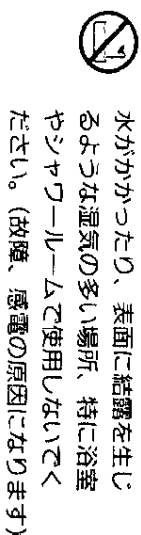 水がかかったり、表面に結露を生じ
るような湿気の多い場所、特に浴室
やシャワールームで使用しないでく
ださい。（故障、感電の原因になります）